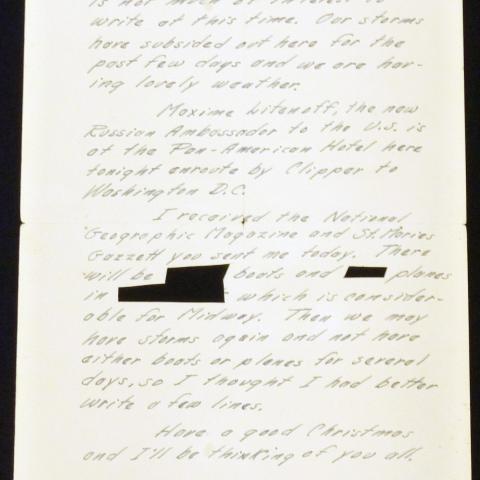 is not much of interest to
write at this time. Our storms
have subsided out here for the
past few days and we are hav-
ing lovely weather.
Maxime Litenoff, the new
Russian Ambassador to the U.S. is
at the Pan-American Hotel here
tonight enroute by Clipper to
Washington D.C.
I received the National
Geographic Magazine and St. Maries
Gazzett you sent me today. There
will be boats and planes
in which is consider-
able for Midway. Then we may
have storms again and not have
either boats or planes for several
days, so I thought I had better
write a few lines.
Have a good Christmas
and I'll be thinking of you all.